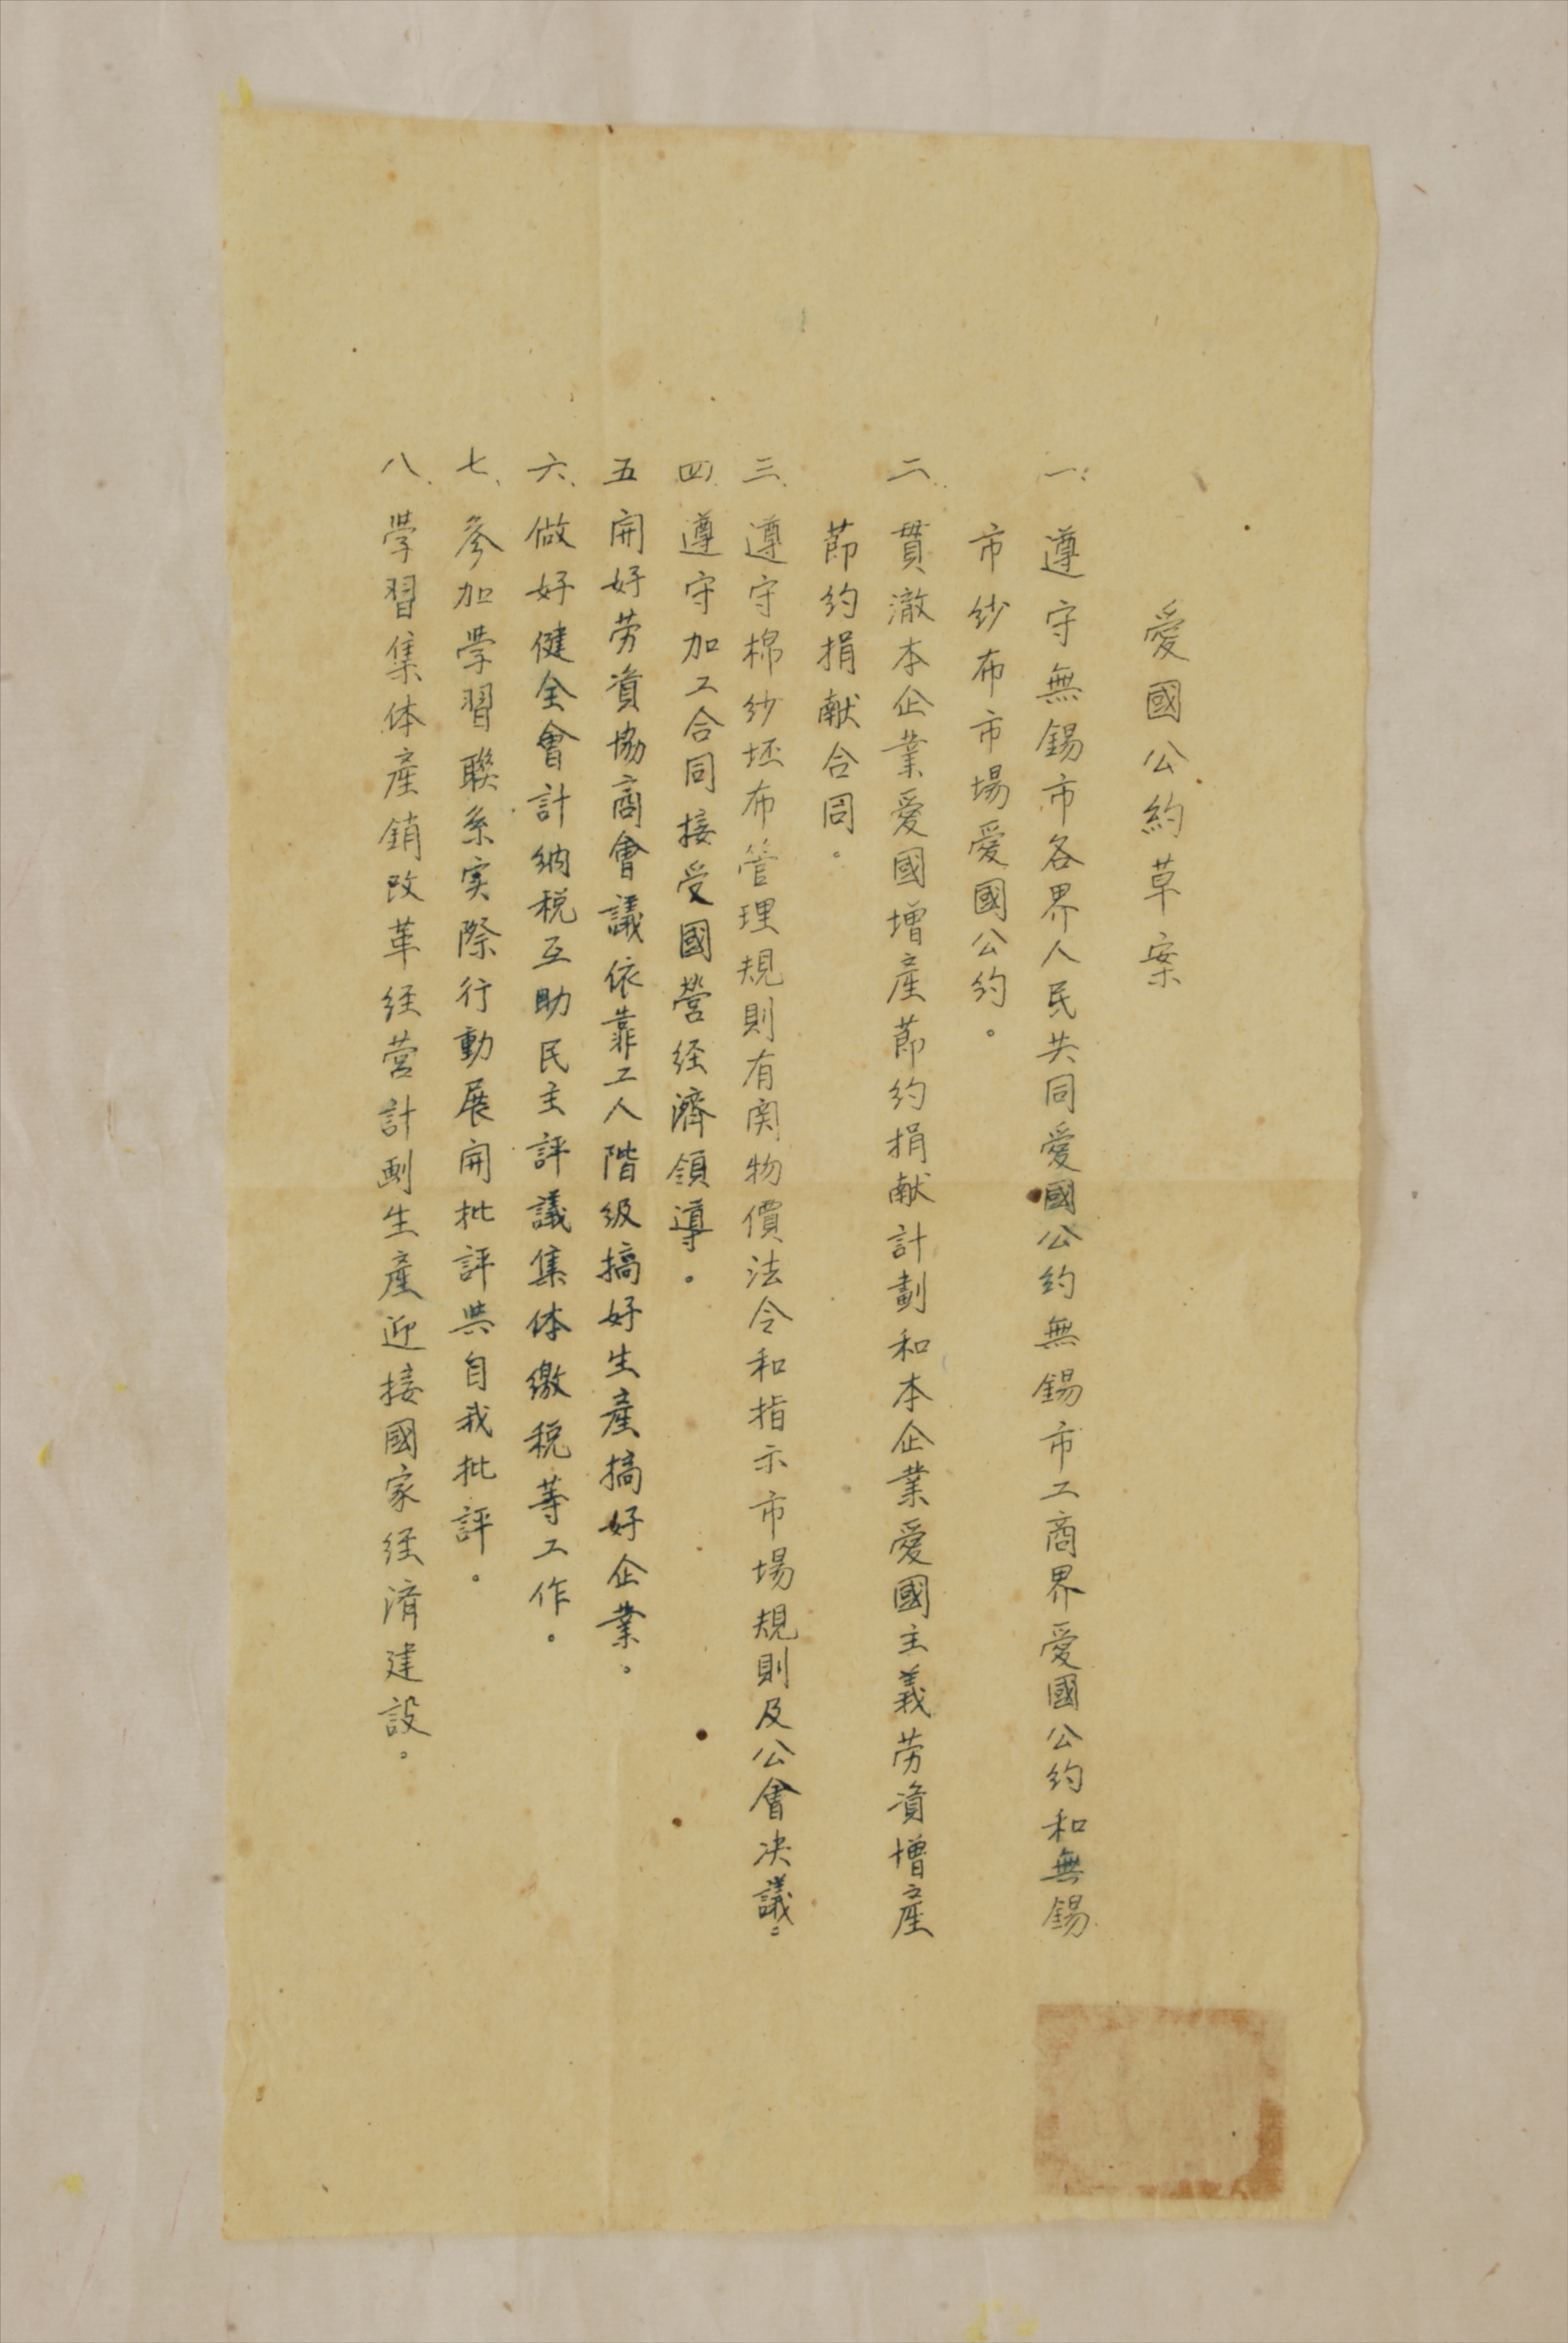 愛國公約草案
一、遵守無錫市各界人民共同愛國公约無錫市工商界愛國公约和無錫
市紗布市場愛國公约。
二、貫澈本企業愛國增產節约捐献計劃和本企業愛國主義劳資增產
節约捐献合同。
三、遵守棉紗坯布管理規則有関物價法令和指示市場規則及公會决議。
四、遵守加工合同接受國營经濟領導。
五開好劳資協商會議依靠工人階级搞好生產搞好企業。
六、做好健全會計纳税互助民主評議集体缴税等工作。
七、参加学習聯系实際行動展開批評與自我批評。
八、学習集体產銷改革经营計劃生產迎接國家经濟建設。